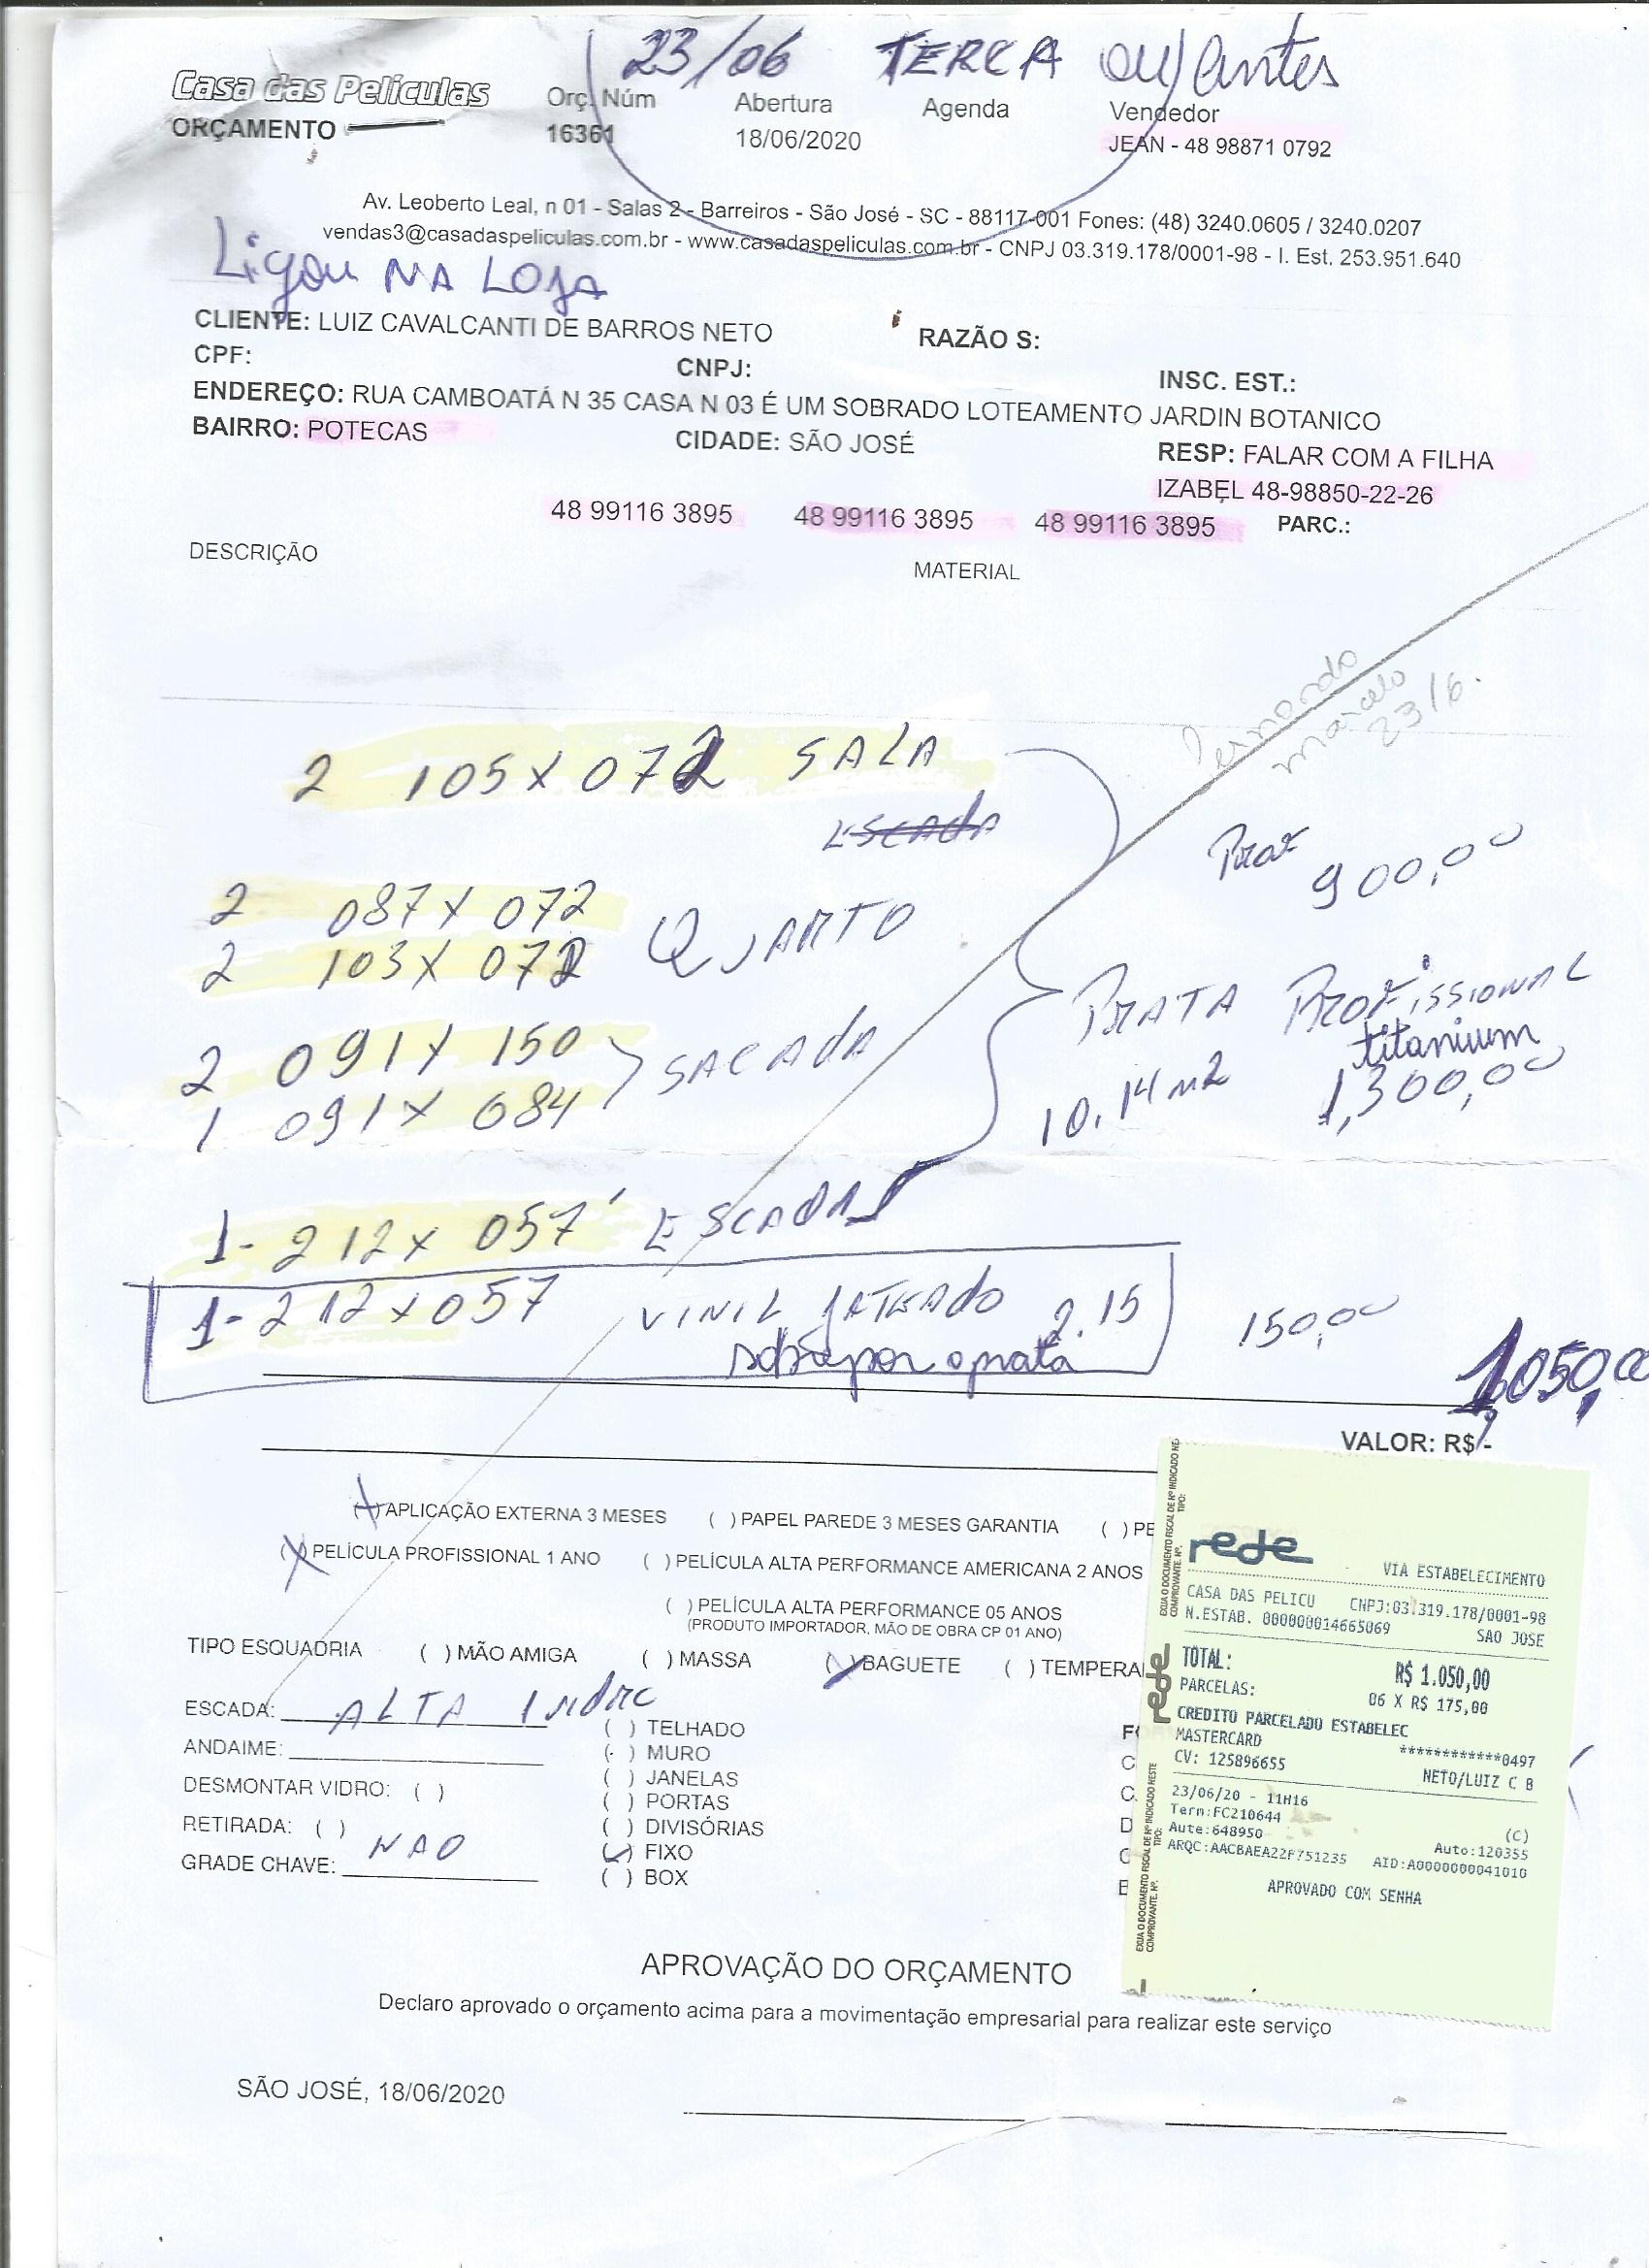 23/06 TERCA ou/antes
Casa das Películas
Orç. Núm Abertura Agenda Vendedor
ORÇAMENTO 16361 18/06/2020 JEAN - 48 98871 0792
Av. Leoberto Leal, n 01 - Salas 2 - Barreiros - São José - SC - 88117-001 Fones: (48) 3240.0605 / 3240.0207
vendas3@casadaspeliculas.com.br - www.casadaspeliculas.com.br - CNPJ 03.319.178/0001-98 - I. Est. 253.951.640
Ligou NA LOJA
CLIENTE: LUIZ CAVALCANTI DE BARROS NETO RAZÃO S:
CPF: CNPJ: INSC. EST.:
ENDEREÇO: RUA CAMBOATÁ N 35 CASA N 03 É UM SOBRADO LOTEAMENTO JARDIN BOTANICO
BAIRRO: POTECAS CIDADE: SÃO JOSÉ RESP: FALAR COM A FILHA
IZABEL 48-98850-22-26
48 99116 3895 48 99116 3895 48 99116 3895 PARC.:
DESCRIÇÃO MATERIAL
Fernando
marcelo
23/6.
2 105 X 072 SALA
Escada
Prof 900,00
2 087 X 072
2 103 X 072 QUARTO
PRATA PROFISSIONAL
titanium
2 091 X 150
1 091 X 084 SACADA
10.14 m2 1,300,00
1- 212 X 057 ESCADA
1- 212 X 057 VINIL JATEADO 2.15 150,00
sobrepor o prata
1,050,00
VALOR: R$ -
(X) APLICAÇÃO EXTERNA 3 MESES ( ) PAPEL PAREDE 3 MESES GARANTIA ( ) PE
(X) PELÍCULA PROFISSIONAL 1 ANO ( ) PELÍCULA ALTA PERFORMANCE AMERICANA 2 ANOS
( ) PELÍCULA ALTA PERFORMANCE 05 ANOS
(PRODUTO IMPORTADOR, MÃO DE OBRA CP 01 ANO)
TIPO ESQUADRIA ( ) MÃO AMIGA ( ) MASSA ( ) BAGUETE ( ) TEMPERA
ESCADA: ALTA
( ) TELHADO
ANDAIME: ( ) MURO
( ) JANELAS
DESMONTAR VIDRO: ( ) ( ) PORTAS
RETIRADA: ( ) ( ) DIVISÓRIAS
GRADE CHAVE: NAO ( ) FIXO
( ) BOX
EXIJA O DOCUMENTO FISCAL DE Nº INDICADO NESTE
COMPROVANTE. Nº. TIPO:
rede
VIA ESTABELECIMENTO
CASA DAS PELICU CNPJ:03.319.178/0001-98
N.ESTAB. 000000014665069 SAO JOSE
TOTAL: R$ 1.050,00
PARCELAS: 06 X R$ 175,00
CREDITO PARCELADO ESTABELEC
MASTERCARD ************0497
CV: 125896655 NETO/LUIZ C B
23/06/20 - 11H16
Term:FC210644 (C)
Aute:648950 Auto:120355
ARQC:AACBAEA22F751235 AID:A0000000041010
APROVADO COM SENHA
APROVAÇÃO DO ORÇAMENTO
Declaro aprovado o orçamento acima para a movimentação empresarial para realizar este serviço
SÃO JOSÉ, 18/06/2020